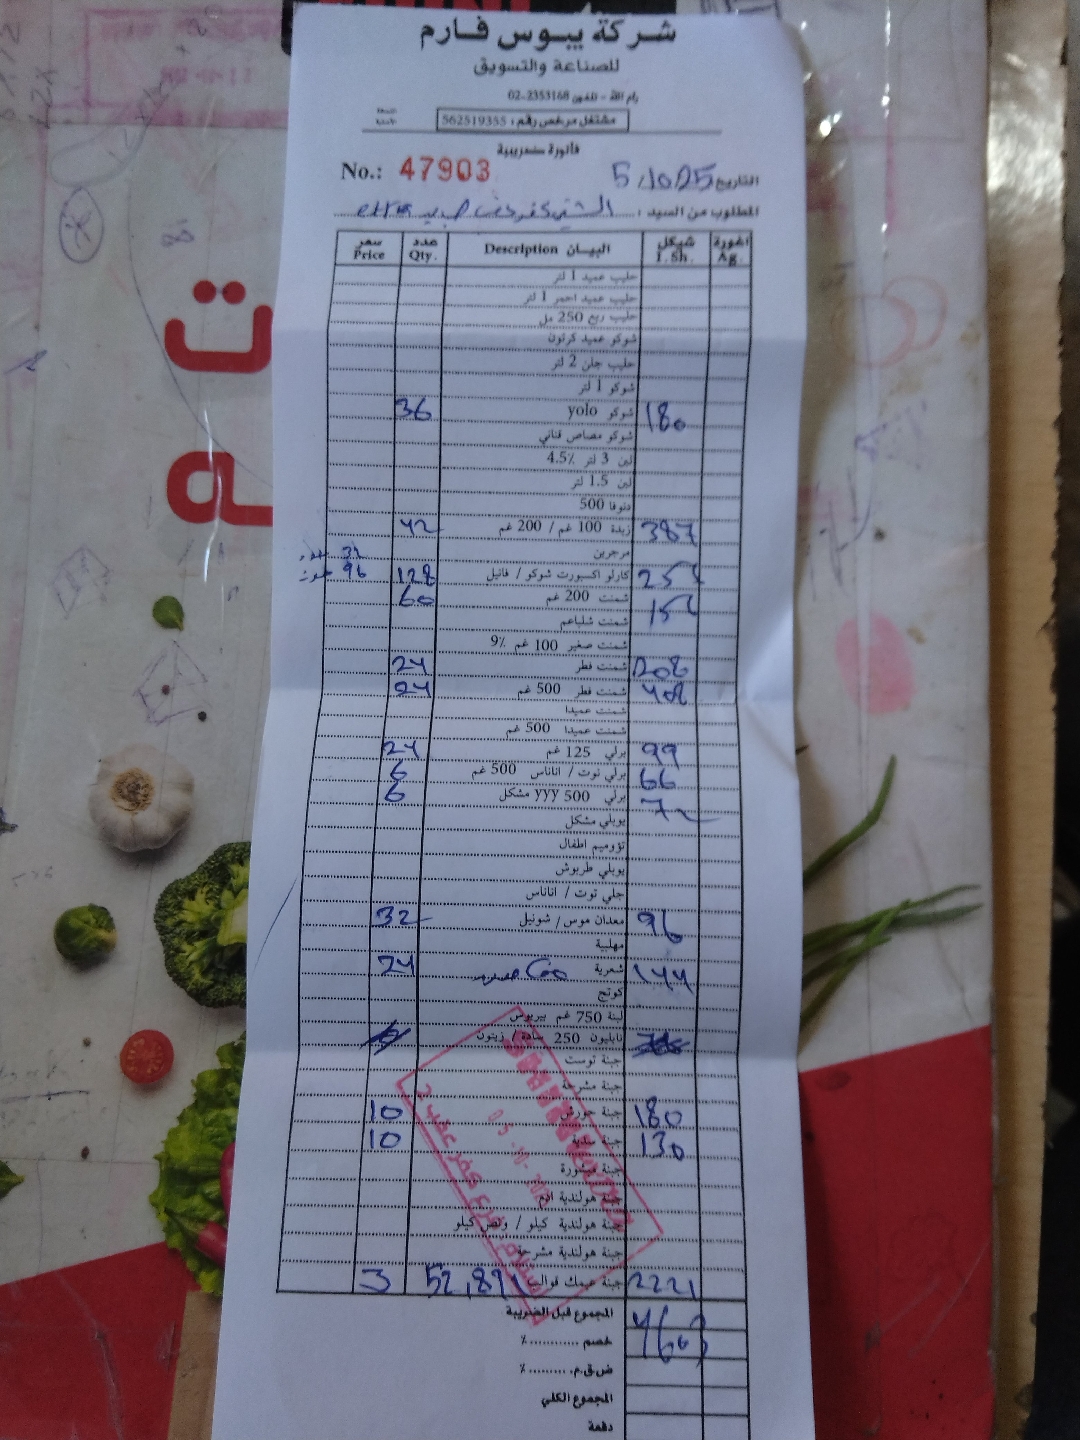 شركة يبوس فارم
للصناعة والتسويق
رام الله - تلفون 02-2353168
مشتغل مرخص رقم : 562519355
فاتورة ضريبية
No.: 47903 التاريخ 5/10/25
المطلوب من السيد :
سعر Price عدد Qty. البيـــان Description شيكل I.Sh. اغورة Ag.
حليب عميد 1 لتر
حليب عميد احمر 1 لتر
حليب ربع 250 مل
شوكو عميد كرتون
حليب جلن 2 لتر
شوكو 1 لتر
36 شوكو yolo 180
شوكو مصاص قناني
لبن 3 لتر 4.5٪
لبن 1.5 لتر
دنوفا 500
42 زبدة 100 غم / 200 غم 387
مرجرين
32
96 128 كارلو اكسبورت شوكو / فانيل
60 شمنت 200 غم
شمنت شلباعم
شمنت صغير 100 غم 9٪
24 شمنت فطر 208
24 شمنت فطر 500 غم 408
شمنت عميدا
شمنت عميدا 500 غم
24 برلي 125 غم 99
6 برلي توت / اناناس 500 غم 66
6 برلي 500 yyy مشكل
يوبلي مشكل
تؤوميم اطفال
يوبلي طربوش
جلي توت / اناناس
32 معدان موس / شونيل 96
مهلبية
24 شعرية 144
كوتج
لبنة 750 غم بيريوس
نابليون 250 سادة / زيتون
جبنة توست
جبنة مشرحة
10 جبنة 180
10 جبنة 130
جبنة مبشورة
جبنة هولندية
جبنة هولندية كيلو / ونص كيلو
جبنة هولندية مشرحة
3 52,891 جبنة عيمك قوالب 2221
المجموع قبل الضريبة
خصم ............ ٪ 4603
ض.ق.م. .......... ٪
المجموع الكلي
دفعة
ت
ه